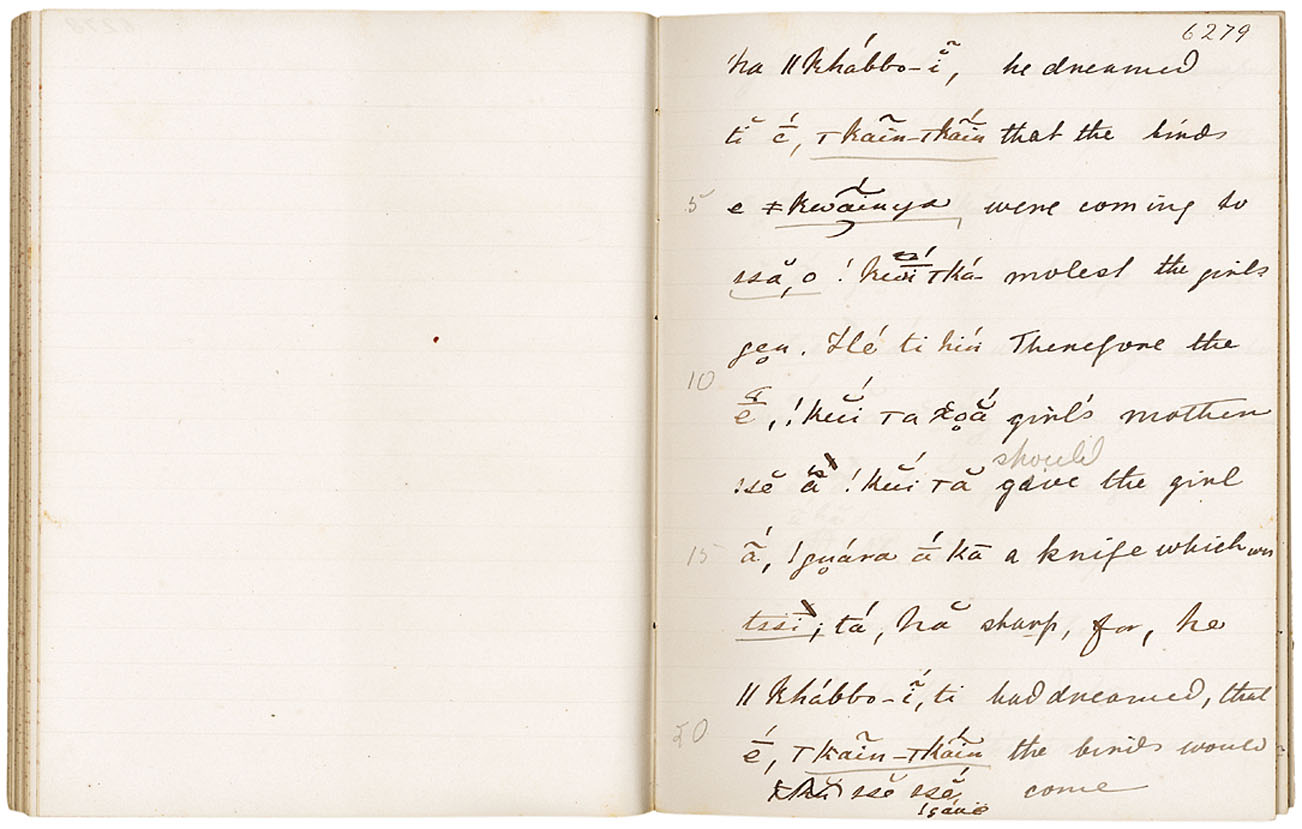 6279
ha ǁkhábbo-ĩ, he dreamed
tĭ é̄, ꞇkãĩn-ꞇkãĩn that the birds
5 e ǂkwãinya were coming to
ssă, o !kwi ꞇká- molest the girls
gen. Hé ti hiń Therefore the
10
ē, !kŭi ꞇa xoắ girl's mother
should
ssĕ ă !kŭi ꞇă give the girl
15 ã́, !guára ā́ kā a knife which was
tssi; tá, hă sharp, for, he
ǁkhábbo-ĩ, ti had dreamed, that
20
é̄, ꞇkãin-ꞇkãin the birds would
ssĕ ssĕ come